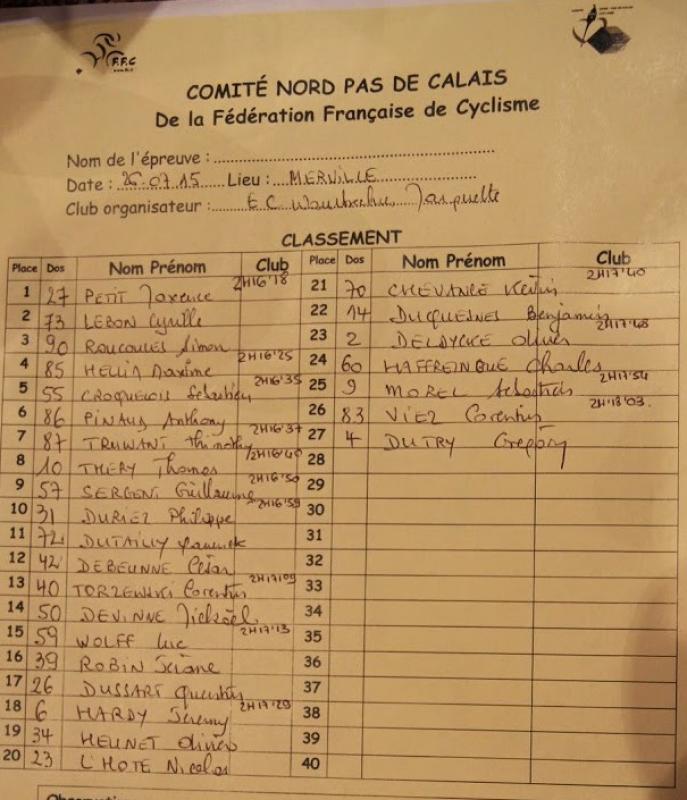 F.F.C
COMITÉ NORD PAS DE CALAIS
De la Fédération Française de Cyclisme
Nom de l'épreuve :
Date : 26.07.15 Lieu : MERVILLE
Club organisateur : E C
CLASSEMENT
Place Dos Nom Prénom Club Place Dos Nom Prénom Club
1 27 PETIT Maxence 2H16'18 21 70 CHEVANCE Kévin 2H17'40
2 73 LEBON Cyrille 22 14 DUQUESNES Benjamin
3 90 ROUCOULES Simon 23 2 Olivier 2H17'48
4 85 HELLIN Maxime 2H16'25 24 60 HAFFREINGUE Charles
5 55 CROQUELOIS Sébastien 2H16'35 25 9 MOREL Sébastien 2H17'54
6 86 PINAUD Anthony 26 83 VIEZ Corentin 2H18'03
7 87 TRUWANT 2H16'37 27 4 DUTRY Gregory
8 10 THERY Thomas 28
9 57 SERGENT Guillaume 2H16'50 29
10 31 DURIEZ Philippe 2H16'59 30
11 72 DUTAILLY Yannick 31
12 42 César 32
13 40 TORZEWSKI Corentin 2H17'09 33
14 50 DEVINNE Mickaël 34
15 59 WOLFF Luc 2H17'13 35
16 39 ROBIN 36
17 26 DUSSART Quentin 37
18 6 HARDY Jeremy 2H17'29 38
19 34 Olivier 39
20 23 L'HOTE Nicolas 40